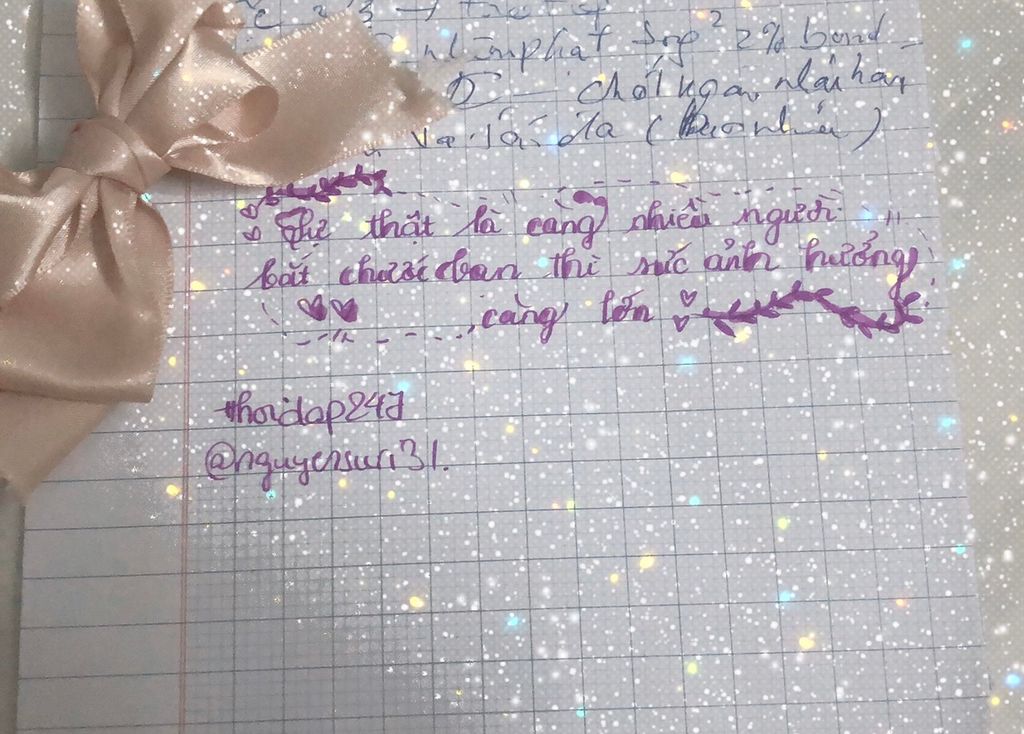 2% bond
chốt nga, nhái hay
và tối đa (
Sự thật là càng nhiều người
bắt chước bạn thì sức ảnh hưởng
càng lớn
#hoidap247
@nguyensuri31.